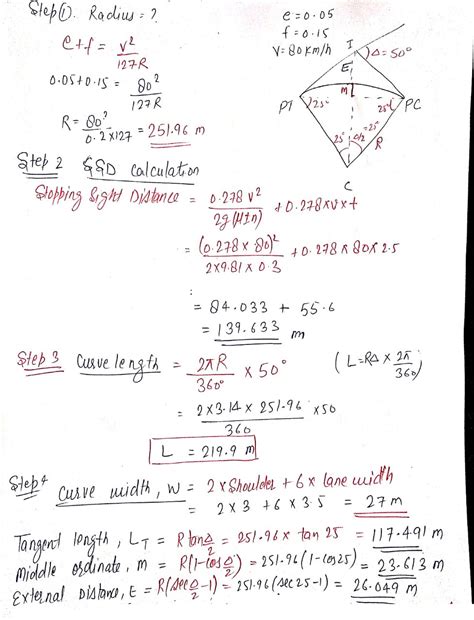 Step(1). Radius = ?
e = 0.05
f = 0.15
V = 80 km/h
e+f = V²/127R
0.05+0.15 = 80²/127R
R = 80²/0.2×127 = 251.96 m
I
Δ = 50°
E
M
PT
25°
25°
PC
25°
Δ/2 = 25°
R
C
Step 2 SSD calculation
Stopping Sight Distance = 0.278 V²/2g(μ±n) + 0.278×V×t
= (0.278 × 80)²/2×9.81×0.3 + 0.278×80×2.5
:
= 84.033 + 55.6
= 139.633 m
Step 3 Curve length = 2πR/360° × 50° (L=RΔ × 2π/360)
= 2×3.14×251.96/360 ×50
L = 219.9 m
Step4 Curve width, W = 2×Shoulder + 6× lane width
= 2×3 + 6×3.5 = 27 m
Tangent length, LT = R tan Δ/2 = 251.96 × tan 25 = 117.491 m
Middle ordinate, m = R(1-cos Δ/2) = 251.96(1-cos25) = 23.613 m
External Distance, E = R(sec Δ/2 -1) = 251.96(sec25-1) = 26.049 m